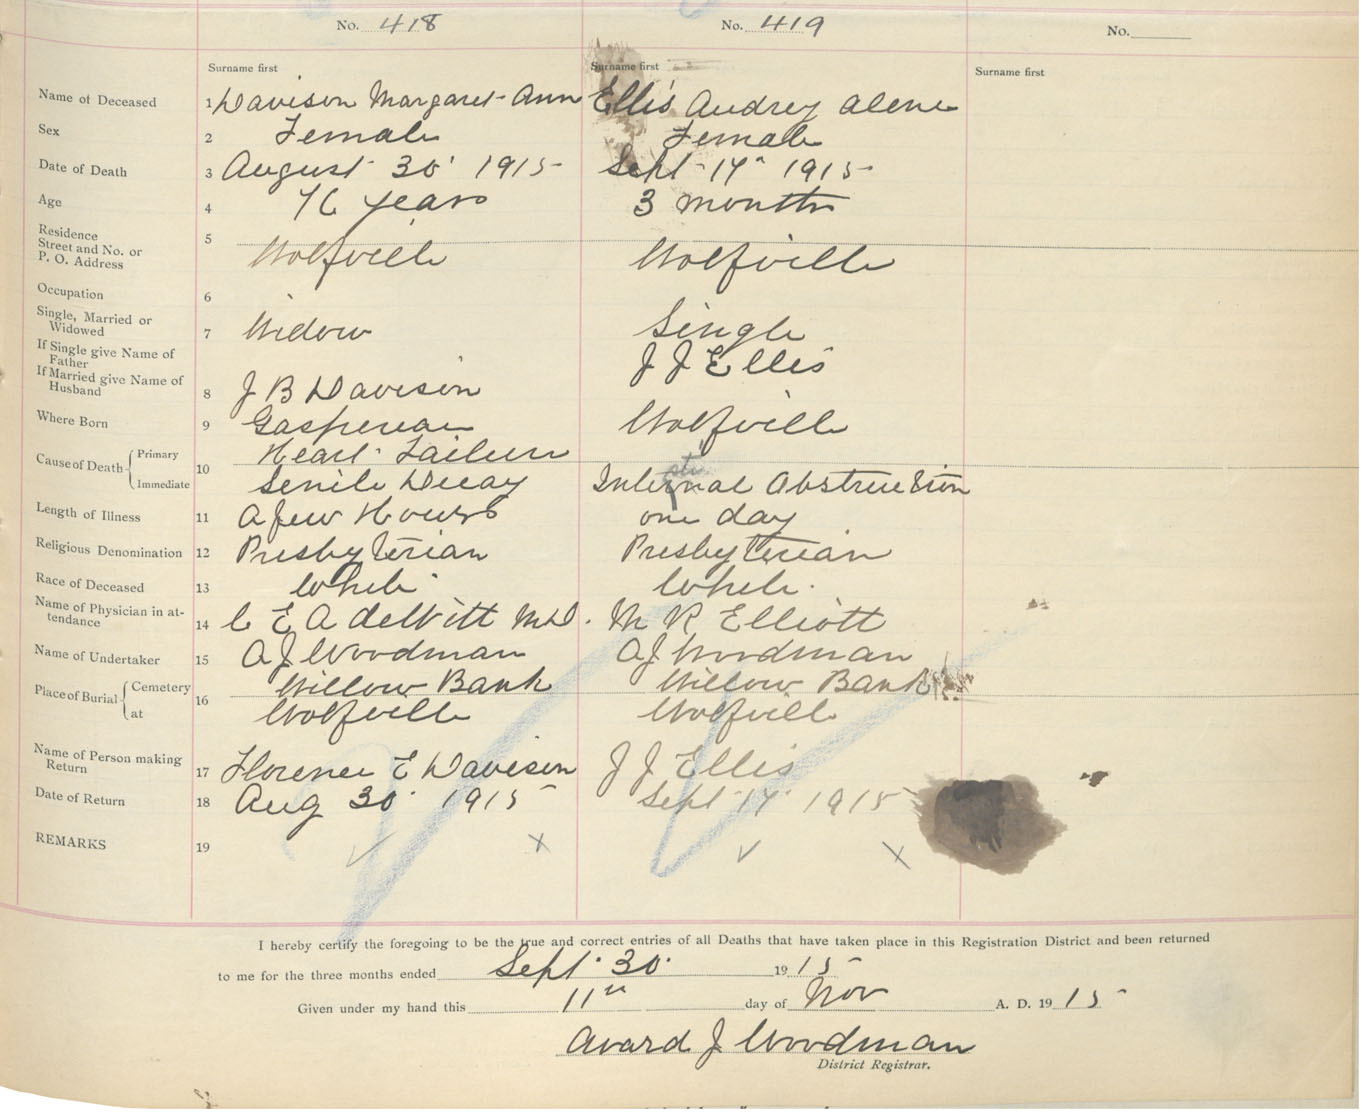 No. 418 No. 419 No.
Surname first Surname first Surname first
Name of Deceased 1 Davison Margaret Ann Ellis Audrey Alene
Sex 2 Female Female
Date of Death 3 August 30 1915 Sept 14" 1915
Age 4 76 years 3 months
Residence
Street and No. or
P. O. Address 5 Wolfville Wolfville
Occupation 6
Single, Married or
Widowed 7 Widow Single
If Single give Name of
Father J J Ellis
If Married give Name of
Husband 8 J B Davison
Where Born 9 Gaspereau Wolfville
Cause of Death Primary 10 Heart Failure
Immediate Senile Decay Internal Abstruction
Length of Illness 11 A few Hours one day
Religious Denomination 12 Presbyterian Presbyterian
Race of Deceased 13 White White
Name of Physician in at-
tendance 14 C E A deWitt M.D. M R Elliott
Name of Undertaker 15 A J Woodman A J Woodman
Place of Burial Cemetery 16 Willow Bank Willow Bank
at Wolfville Wolfville
Name of Person making
Return 17 Florence E Davison J J Ellis
Date of Return 18 Aug 30 1915 Sept 14" 1915
REMARKS 19 X X
I hereby certify the foregoing to be the true and correct entries of all Deaths that have taken place in this Registration District and been returned
to me for the three months ended Sept. 30. 1915
Given under my hand this 11th day of Nov A. D. 1915
Avard J Woodman
District Registrar.